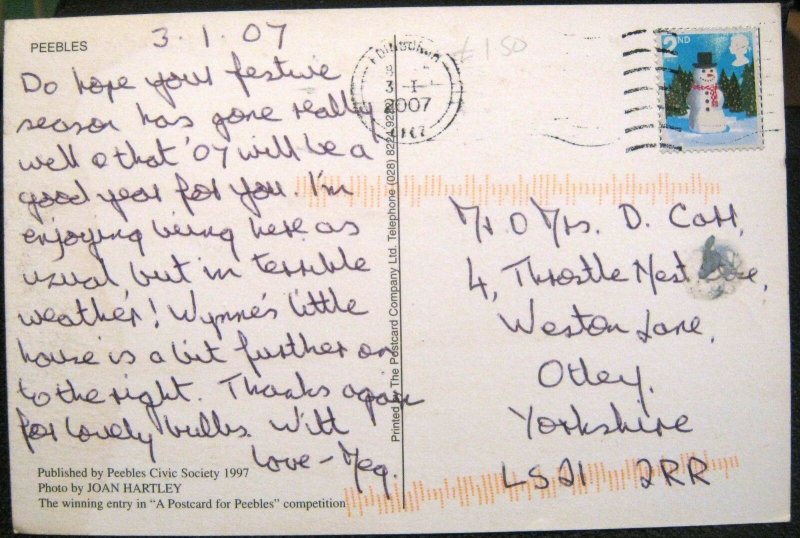 PEEBLES
3.1.07
Do hope your festive
season has gone really
well & that '07 will be a
good year for you. I'm
enjoying being here as
usual, but in terrible
weather! Wynne's little
house is a bit further on
to the right. Thanks again
for lovely bulbs. With
love - Meg.
Published by Peebles Civic Society 1997
Photo by JOAN HARTLEY
The winning entry in "A Postcard for Peebles" competition
Printed by The Postcard Company Ltd. Telephone (028) 8224 922
EDINBURGH
3 - I -
2007
£1.50
2ND
Mr & Mrs. D. Carr,
4, Throstle Nest
Weston Lane,
Otley,
Yorkshire
LS21 2RR